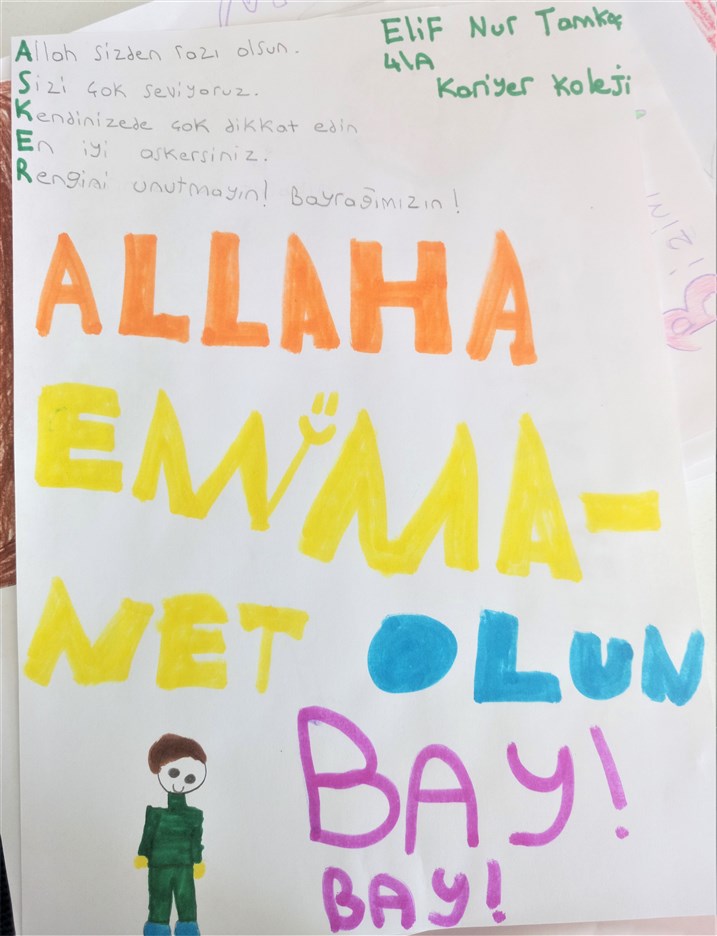 Elif Nur Tamkoç
4\A
Kariyer Koleji
Allah sizden razı olsun.
Sizi çok seviyoruz.
Kendinizede çok dikkat edin
En iyi askersiniz.
Rengini unutmayın! Bayrağımızın!
ALLAHA
EMMA-
NET OLUN
BAY!
BAY!